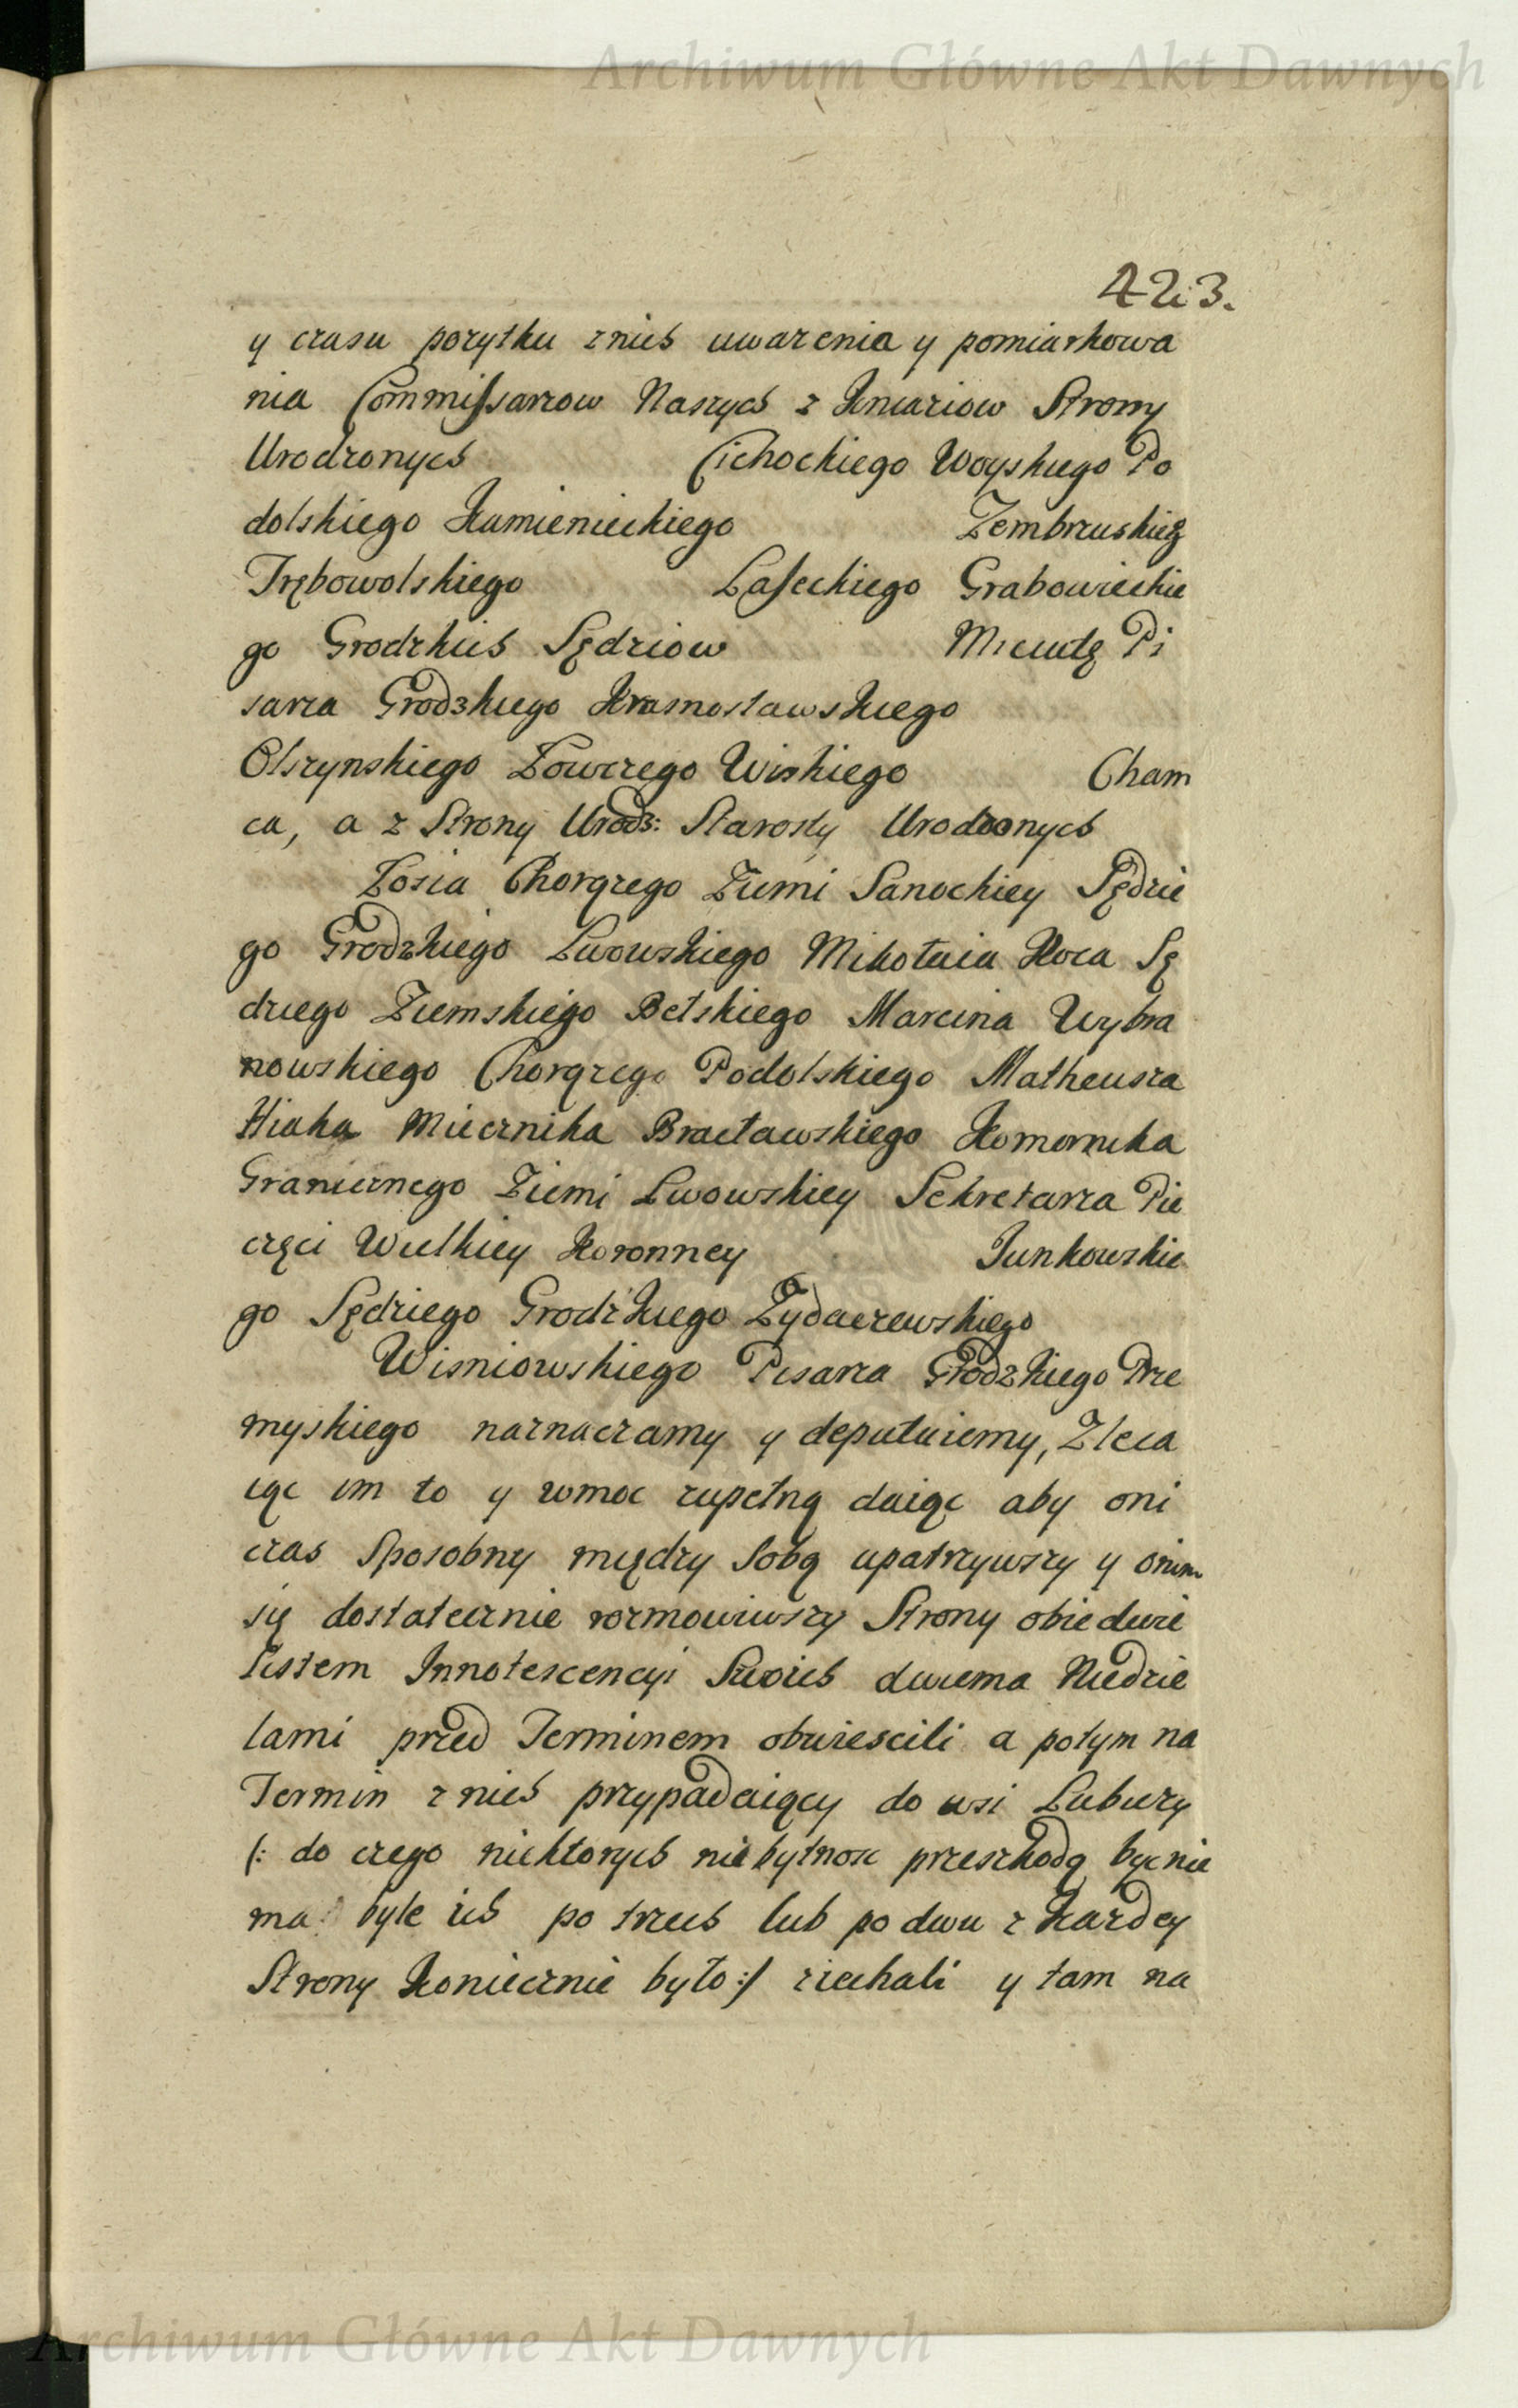 Archiwum Główne Akt Dawnych
423.
y czasu pozytku znich uwazenia y pomiarkowa
nia Commissarzow Naszych z Kniaziow Strony
Urodzonych Cichockiego Woyskiego Po
dolskiego Kamienieckiego Zembrzuskieg
Trębowolskiego Laseckiego Grabowieckie
go Grodzkich Sędziow Pi
sarza Grodzkiego Krasnostawskiego
Olszynskiego Łowczego Wiskiego Cham
ca, a z Strony Urodz: Starosty Urodzonych
Łosia Chorązego Ziemi Sanockiey Sędzie
go Grodzkiego Lwowskiego Mikołaia Koca Sę
dziego Ziemskiego Bełskiego Marcina Wybra
nowskiego Chorązego Podolskiego Matheusza
Miecznika Bracławskiego Komornika
Granicznego Ziemi Lwowskiey Sekretarza Pie
częci Wielkiey Koronney Junkowskie
go Sędziego Grodzkiego Zydaczewskiego
Wisniowskiego Pisarza Grodzkiego Prze
myskiego naznaczamy y deputuiemy, Zleca
iąc im to y wmoc zupełną daiąc aby oni
czas Sposobny między Sobą upatrzywszy y onim
się dostatecznie rozmowiwszy Strony obiedwie
listem Innotescencyi Swoich dwiema Niedzie
lami przed Terminem obwiescili a potym na
Termin znich przypadaiący do wsi Lubuzy
/: do czego niektorych niebytnosc przeszkodą bycnie
ma byle ich po trzech lub po dwu z Kazdey
Strony Koniecznie było :/ ziechali y tam na
Archiwum Główne Akt Dawnych